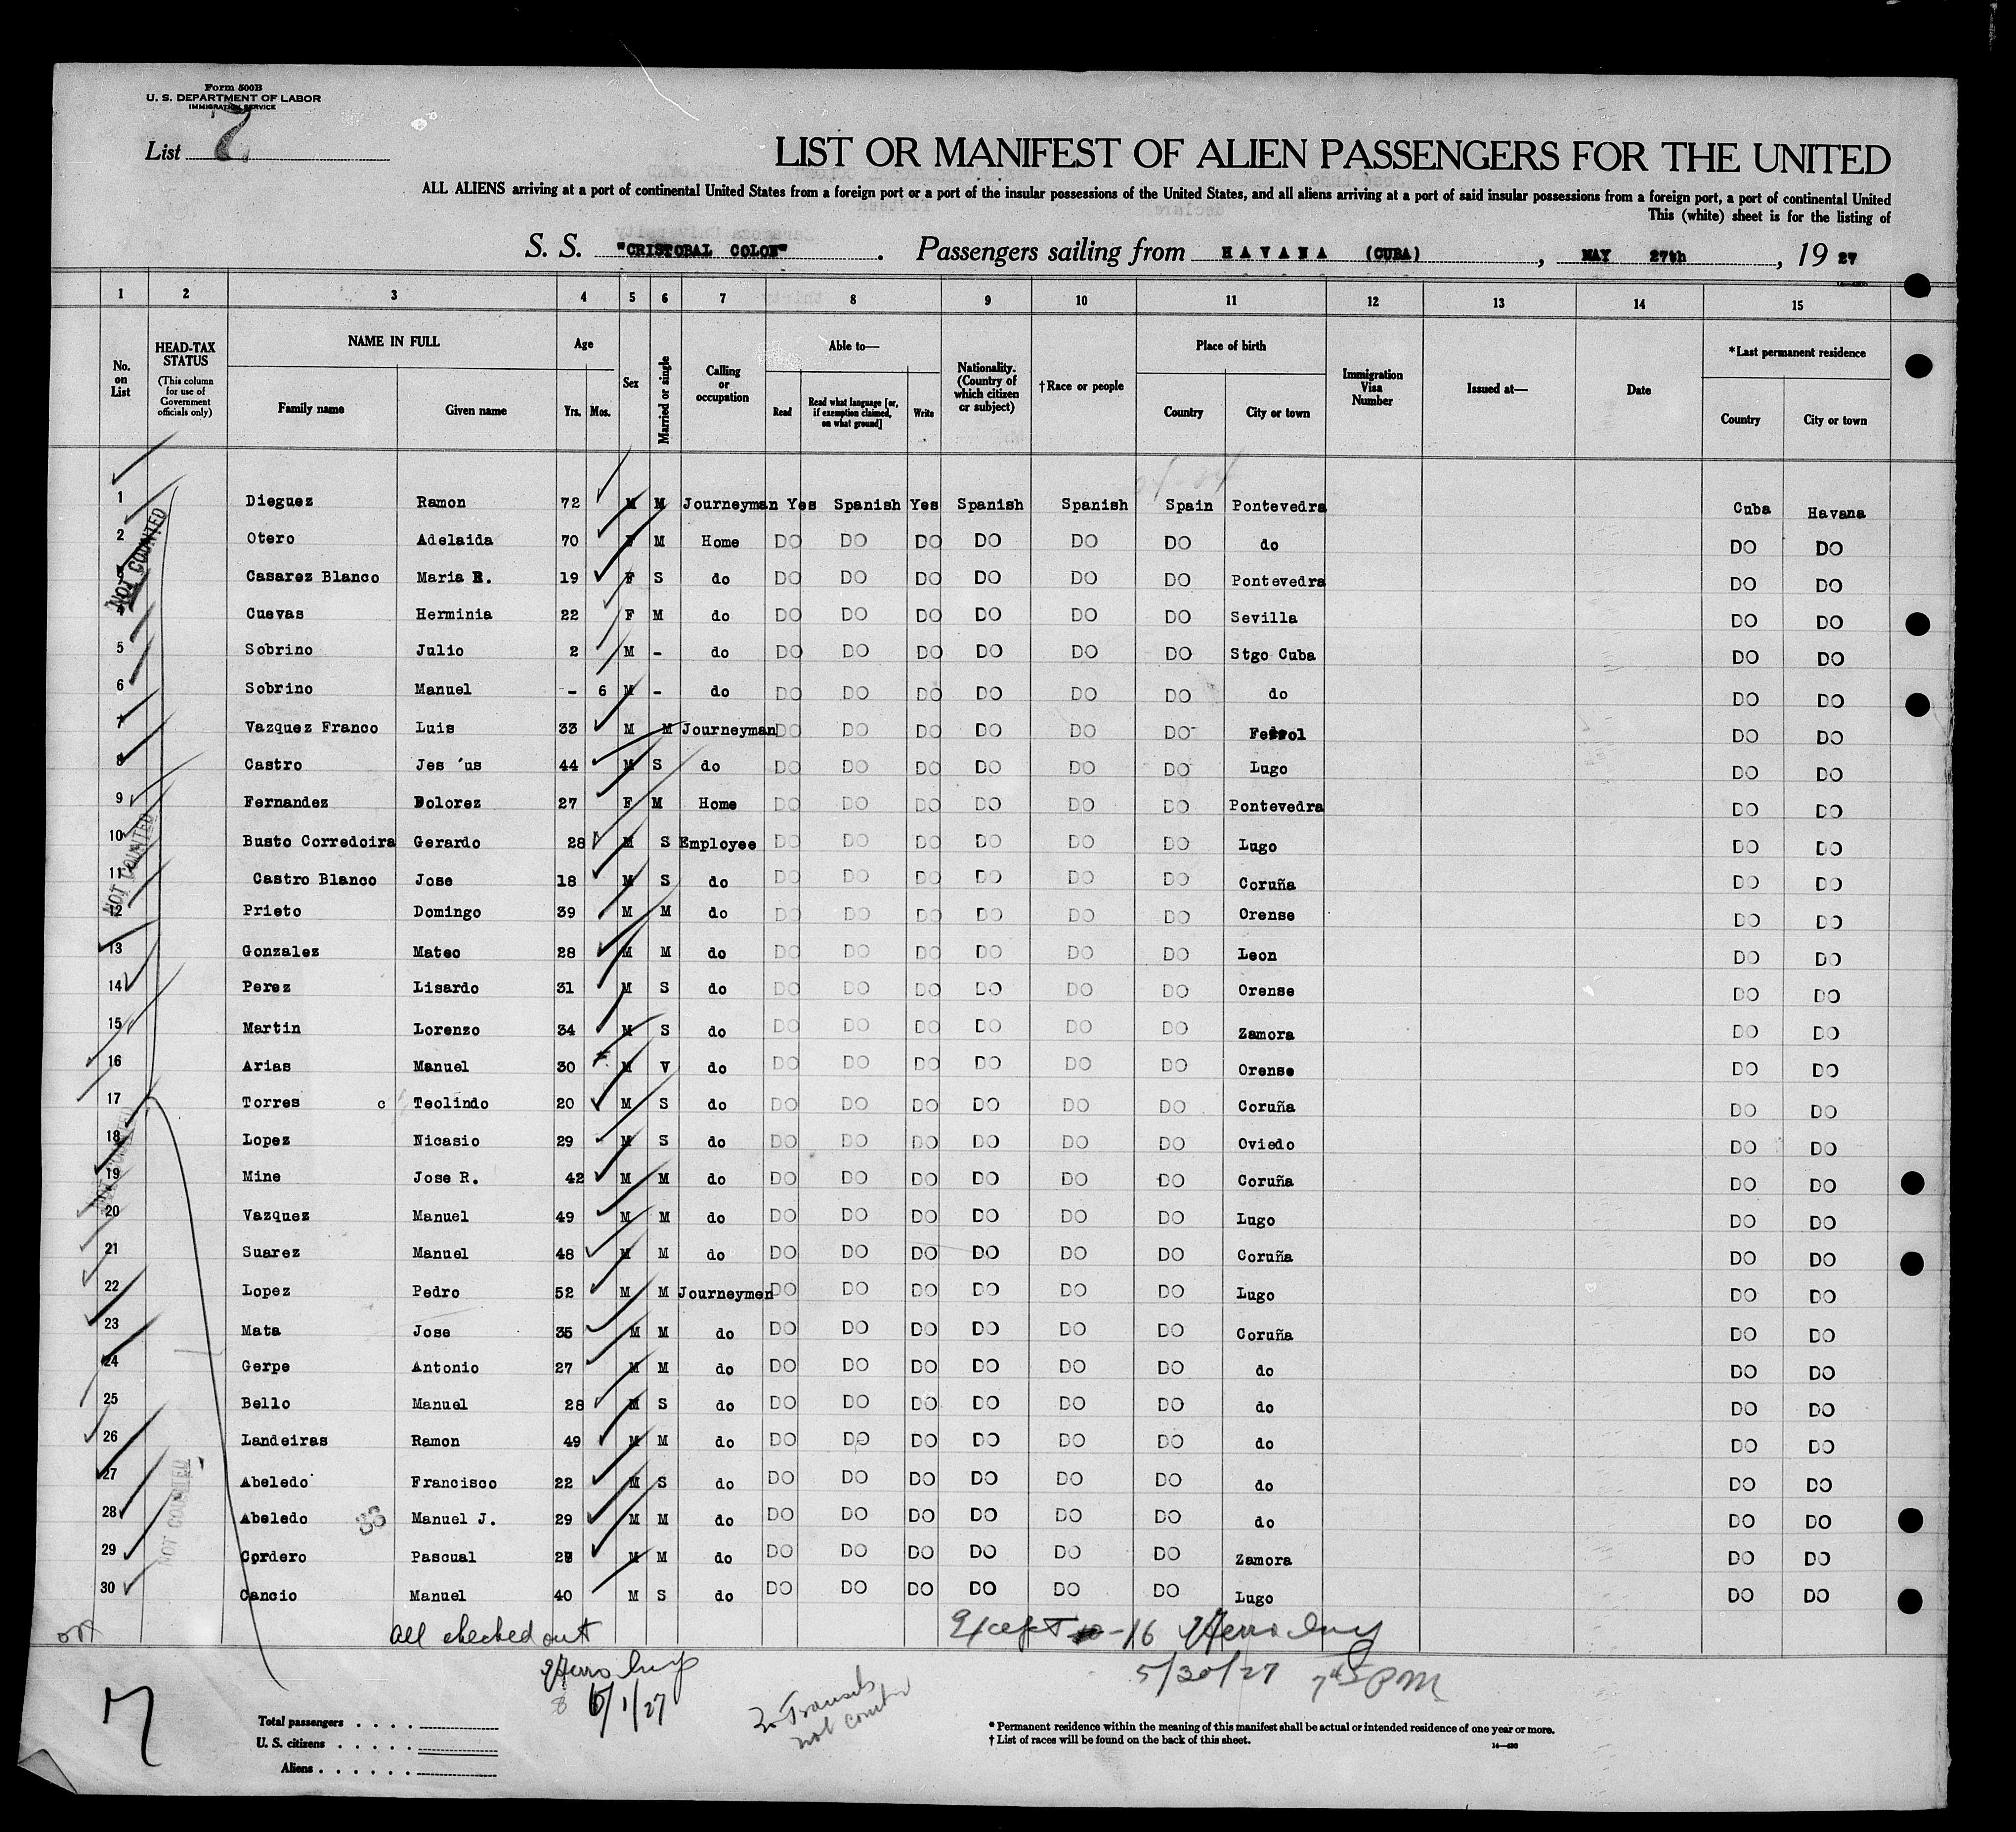 Form 500B
U. S. DEPARTMENT OF LABOR
IMMIGRATION SERVICE
List 7
LIST OR MANIFEST OF ALIEN PASSENGERS FOR THE UNITED
ALL ALIENS arriving at a port of continental United States from a foreign port or a port of the insular possessions of the United States, and all aliens arriving at a port of said insular possessions from a foreign port, a port of continental United
This (white) sheet is for the listing of
S. S. "CRISTOBAL COLON" . Passengers sailing from HAVANA (CUBA) , MAY 27th , 19 27
1 2 3 4 5 6 7 8 9 10 11 12 13 14 15
No. on List
HEAD-TAX STATUS (This column for use of Government officials only)
NAME IN FULL
Family name Given name
Age
Yrs. Mos.
Sex
Married or single
Calling or occupation
Able to—
Read
Read what language [or, if exemption claimed, on what ground]
Write
Nationality. (Country of which citizen or subject)
†Race or people
Place of birth
Country City or town
Immigration Visa Number
Issued at—
Date
*Last permanent residence
Country City or town
1 Dieguez Ramon 72 M M Journeyman Yes Spanish Yes Spanish Spanish Spain Pontevedra Cuba Havana
2 Otero Adelaida 70 F M Home DO DO DO DO DO DO do DO DO
3 Casarez Blanco Maria R. 19 F S do DO DO DO DO DO DO Pontevedra DO DO
4 Cuevas Herminia 22 F M do DO DO DO DO DO DO Sevilla DO DO
5 Sobrino Julio 2 M - do DO DO DO DO DO DO Stgo Cuba DO DO
6 Sobrino Manuel - 6 M - do DO DO DO DO DO DO do DO DO
7 Vazquez Franco Luis 33 M M Journeyman DO DO DO DO DO DO Ferrol DO DO
8 Castro Jes ´us 44 M S do DO DO DO DO DO DO Lugo DO DO
9 Fernandez Dolorez 27 F M Home DO DO DO DO DO DO Pontevedra DO DO
10 Busto Corredoira Gerardo 28 M S Employee DO DO DO DO DO DO Lugo DO DO
11 Castro Blanco Jose 18 M S do DO DO DO DO DO DO Coruña DO DO
12 Prieto Domingo 39 M M do DO DO DO DO DO DO Orense DO DO
13 Gonzalez Mateo 28 M M do DO DO DO DO DO DO Leon DO DO
14 Perez Lisardo 31 M S do DO DO DO DO DO DO Orense DO DO
15 Martin Lorenzo 34 M S do DO DO DO DO DO DO Zamora DO DO
16 Arias Manuel 30 M V do DO DO DO DO DO DO Orense DO DO
17 Torres c Teolindo 20 M S do DO DO DO DO DO DO Coruña DO DO
18 Lopez Nicasio 29 M S do DO DO DO DO DO DO Oviedo DO DO
19 Mine Jose R. 42 M M do DO DO DO DO DO DO Coruña DO DO
20 Vazquez Manuel 49 M M do DO DO DO DO DO DO Lugo DO DO
21 Suarez Manuel 48 M M do DO DO DO DO DO DO Coruña DO DO
22 Lopez Pedro 52 M M Journeymen DO DO DO DO DO DO Lugo DO DO
23 Mata Jose 35 M M do DO DO DO DO DO DO Coruña DO DO
24 Gerpe Antonio 27 M M do DO DO DO DO DO DO do DO DO
25 Bello Manuel 28 M S do DO DO DO DO DO DO do DO DO
26 Landeiras Ramon 49 M M do DO DO DO DO DO DO do DO DO
27 Abeledo Francisco 22 M S do DO DO DO DO DO DO do DO DO
28 Abeledo Manuel J. 29 M M do DO DO DO DO DO DO do DO DO
29 Cordero Pascual 28 M M do DO DO DO DO DO DO Zamora DO DO
30 Cancio Manuel 40 M S do DO DO DO DO DO DO Lugo DO DO
NOT COUNTED
NOT COUNTED
NOT COUNTED
NOT COUNTED
33
All checked out
Except 16
5/30/27 PM
6/1/27
30 Transits not counted
7
Total passengers . . . .
U. S. citizens . . . . .
Aliens . . . . . .
* Permanent residence within the meaning of this manifest shall be actual or intended residence of one year or more.
† List of races will be found on the back of this sheet.
14—430